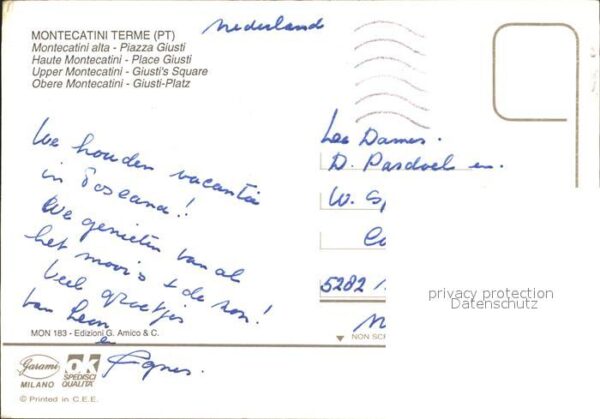 nederland
MONTECATINI TERME (PT)
Montecatini alta - Piazza Giusti
Haute Montecatini - Place Giusti
Upper Montecatini - Giusti's Square
Obere Montecatini - Giusti-Platz
We houden vacantie
in Toscana!
We genieten van al
het moois + de zon!
Veel groetjes
van Leon
en
Agnes.
Les Dames.
D. Pasdoel en
W. Sp
Co
5282
privacy protection
Datenschutz
MON 183 - Edizioni G. Amico & C.
NON SCR
Garami
MILANO
ok
SPEDISCI
QUALITA'
© Printed in C.E.E.